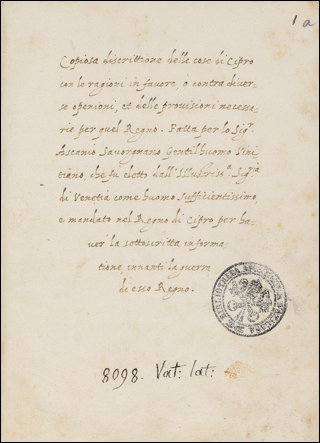 1 a
Copiosa discrittione delle cose di Cipro
con le ragioni in favore, ò contra diver-
se openioni, et delle provisioni necessa-
rie per quel Regno. Fatta per lo Sigr.
Ascanio Savorgnano Gentilhuomo Vini-
tiano, che fu eletto dall'Illustrissa. Sigria
di Venetia come huomo sufficientissimo,
e mandato nel Regno di Cipro per ha-
ver la sottoscritta informa-
tione, innanti la guerra
di esso Regno.
BIBLIOTHECA APOSTOLICA VATICANA
8098. Vat: lat: